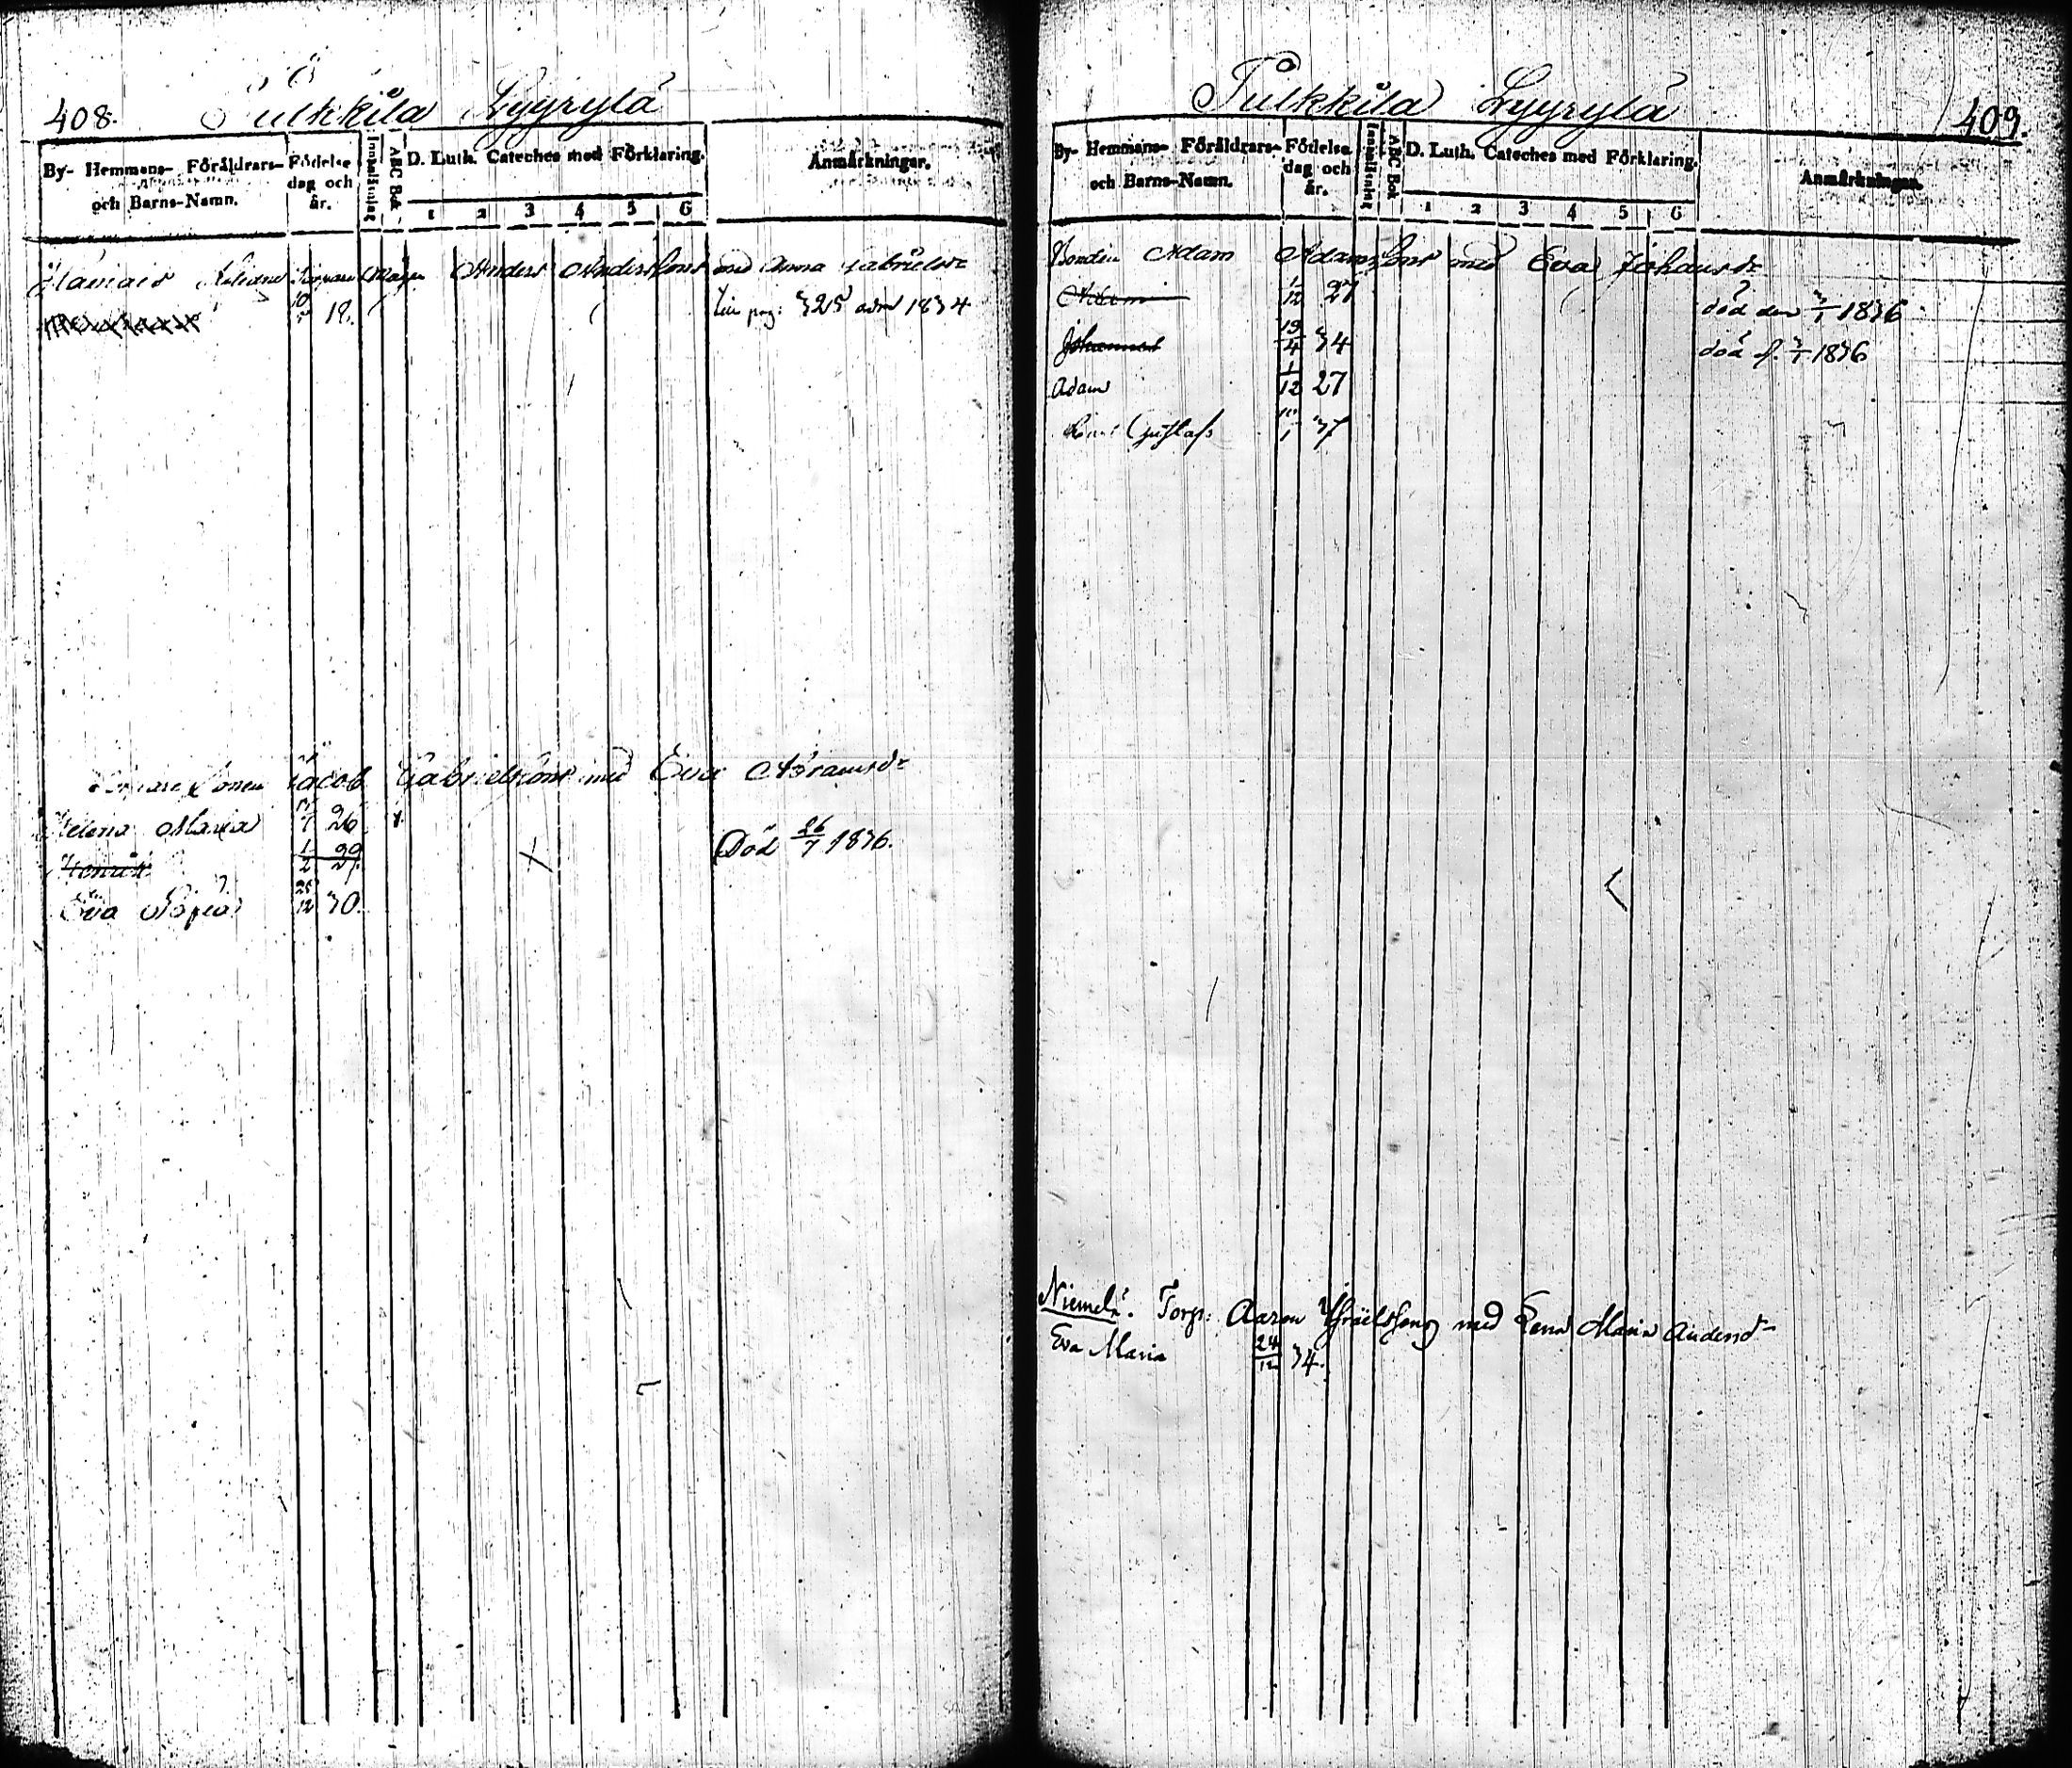 408.
Tulkkila Lyyrylä
By- Hemmans- Föräldrars- och Barns-Namn.
Födelse dag och år.
Innanläsning
ABC Bok
D. Luth. Cateches med Förklaring.
1 2 3 4 5 6
Anmärkningar.
Torpare Anders Anderssons med Anna Gabrielsd:
10/5 18. till pag: 325 adm 1834
Sonen Jacob Gabrielssons med Eva Abramsd:
Helena Maria 26
Henrik 1/2 29. Död 26/7 1836.
Eva Sofia 25/12 30.
Tulkkila Lyyrylä
409.
By- Hemmans- Föräldrars- och Barns-Namn.
Födelse dag och år.
Innanläsning
ABC Bok
D. Luth. Cateches med Förklaring.
1 2 3 4 5 6
Anmärkningar.
Bonden Adam Adamssons med Eva Johansd:
1/12 27 död den 3/1 1836
Johannes 19/4 34 död d. 3/1 1836
Adam 1/12 27
Gustaf 37
Niemelä. Torp: Aaron Ysraelssons med Lena Maria Andersd:
Eva Maria 24/12 34.